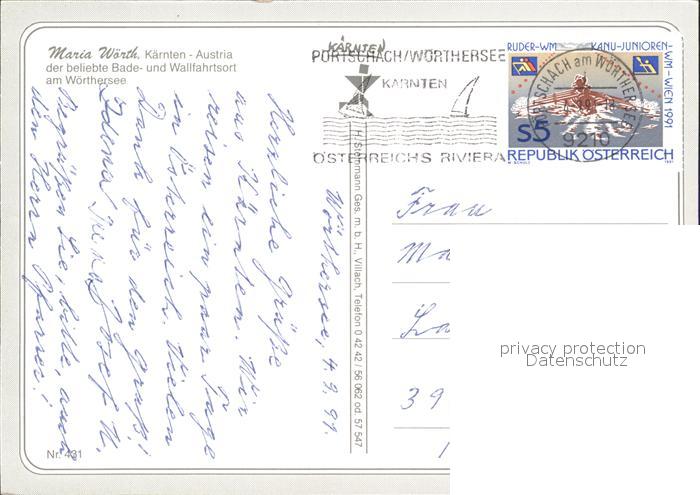 Maria Wörth, Kärnten - Austria
der beliebte Bade- und Wallfahrtsort
am Wörthersee
KÄRNTEN
PÖRTSCHACH/WÖRTHERSEE
KÄRNTEN
ÖSTERREICHS RIVIERA
RUDER-WM KANU-JUNIOREN-WM-WIEN 1991
PÖRTSCHACH am WÖRTHERSEE
9210
S5
REPUBLIK ÖSTERREICH
1991
Wörthersee, 4.9.91.
Herzliche Grüße
aus Kärnten. Wir
reisen ein paar Tage
in Österreich. Vielen
Dank für den Gruß!
Josef u.
Begrüßen Sie, bitte, auch
den Herrn Pfarrer!
H. Steinmann Ges. m. b. H., Villach, Telefon 0 42 42 / 56 062 od. 57 547
Frau
Ma
39
privacy protection
Datenschutz
Nr. 431